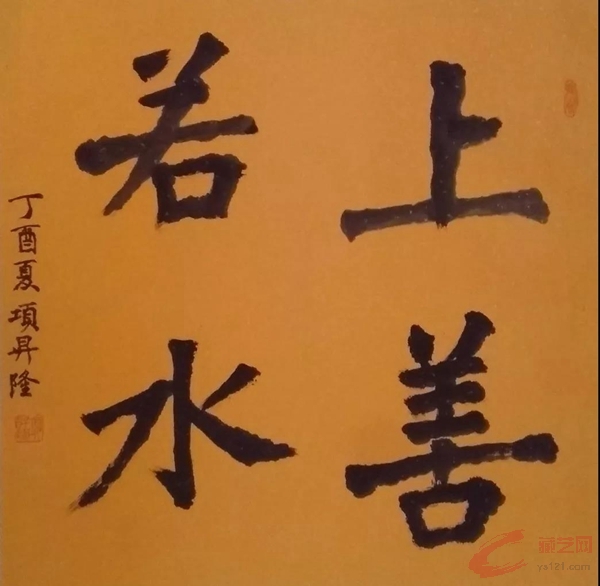 上善
若水
丁酉夏項昇隆
藏艺网
ya121.com